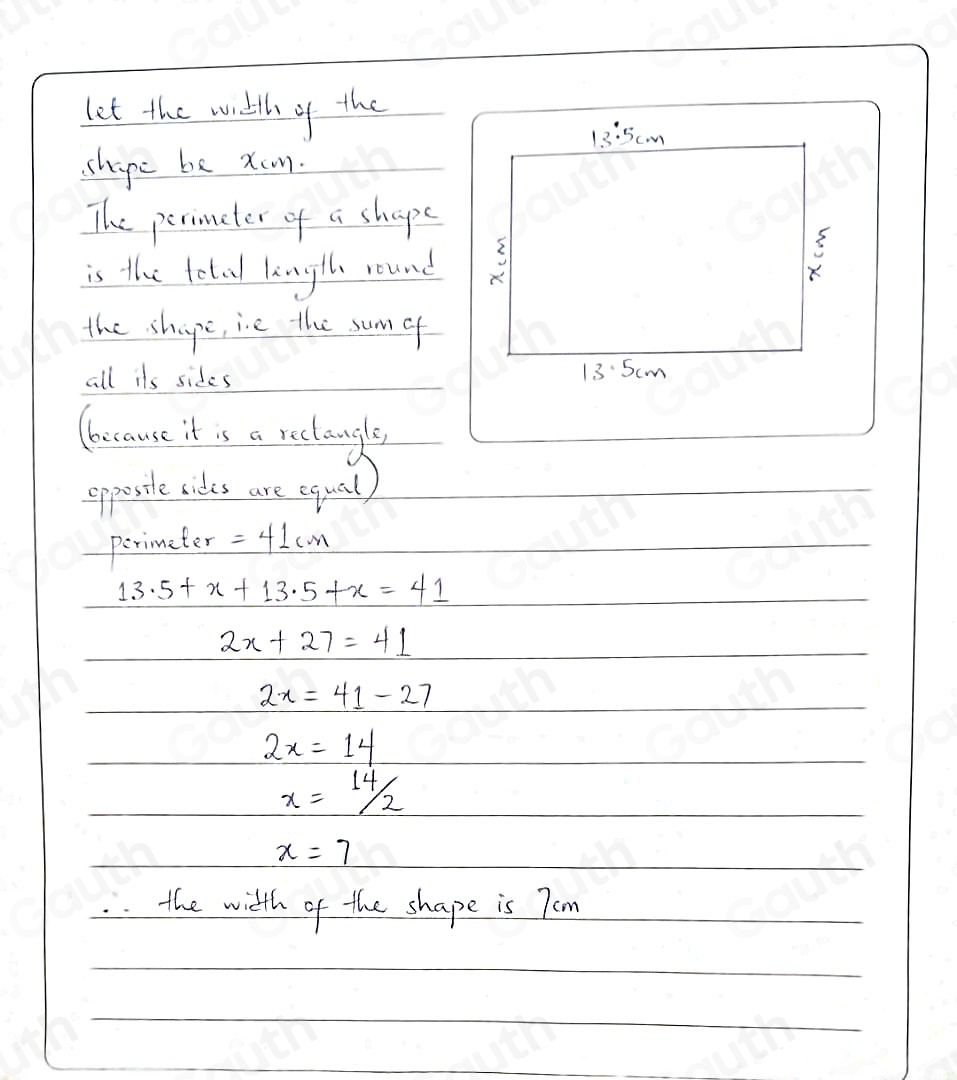 let the width of the
shape be x cm.
The perimeter of a shape
is the total length round
the shape, i.e the sum of
all its sides
(because it is a rectangle,
opposite sides are equal)
perimeter = 41cm
13.5 + x + 13.5 + x = 41
2x + 27 = 41
2x = 41 - 27
2x = 14
x = 14/2
x = 7
∴ the width of the shape is 7cm
13.5cm
x cm
x cm
13.5cm
Gauth